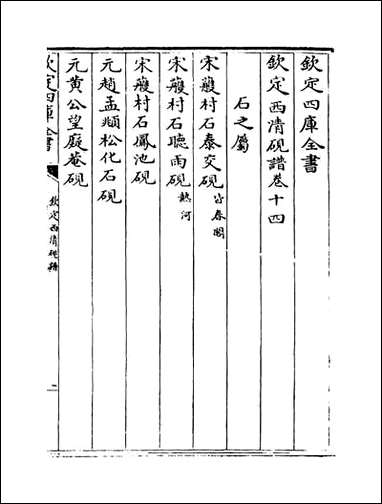 欽定四庫全書
欽定西清硯譜卷十四
石之屬
宋䕫村石泰交硯 皆春閣
宋䕫村石聽雨硯 熱河
宋䕫村石鳳池硯
元趙孟頫松化石硯
元黄公望癡菴硯
欽定四庫全書
欽定西清硯譜
一